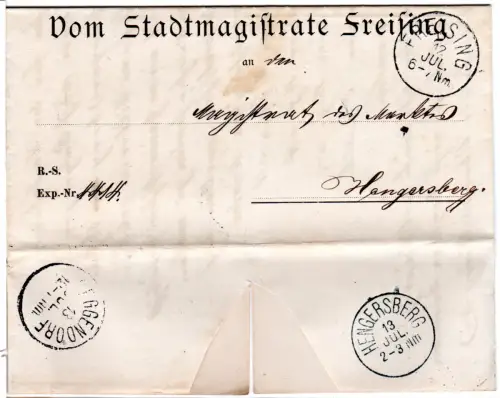 Vom Stadtmagistrate Freising
FREISING
12
JUL.
6-7 Nm.
an den
Magistrat des Marktes
R.-S.
Exp.-Nr.
Hengersberg.
DEGGENDORF
13
JUL
Nm.
HENGERSBERG
13
JUL.
2-3 Nm